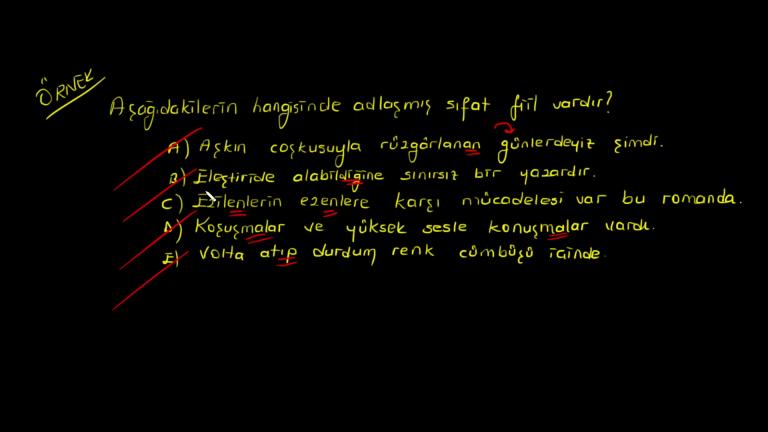 ÖRNEK
Aşağıdakilerin hangisinde adlaşmış sıfat fiil vardır?
A) Aşkın coşkusuyla rüzgârlanan günlerdeyiz şimdi.
B) Eleştiride alabildiğine sınırsız bir yazardır.
C) Ezilenlerin ezenlere karşı mücadelesi var bu romanda.
D) Koşuşmalar ve yüksek sesle konuşmalar vardı.
E) Volta atıp durdum renk cümbüşü içinde.